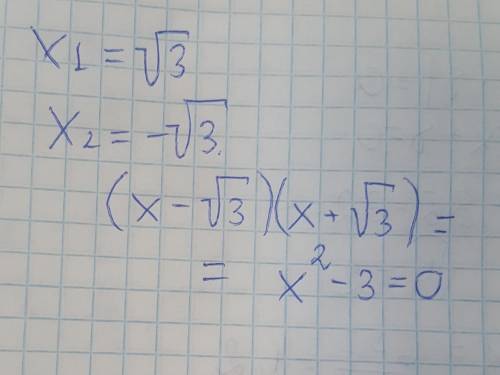 x₁ = √3
x₂ = -√3.
(x - √3)(x + √3) =
= x² - 3 = 0